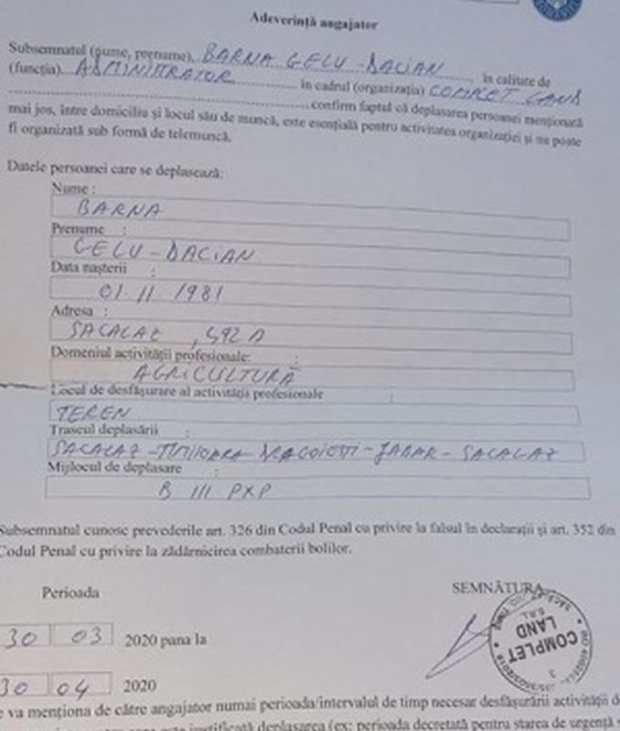 Adeverință angajator
Subsemnatul (nume, prenume), BARNA GELU-DACIAN, în calitate de
(funcția) ADMINISTRATOR în cadrul (organizația) COMPLET LAND
confirm faptul că deplasarea persoanei menționată
mai jos, între domiciliu și locul său de muncă, este esențială pentru activitatea organizației și nu poate
fi organizată sub formă de telemuncă.
Datele persoanei care se deplasează:
Nume :
BARNA
Prenume :
GELU-DACIAN
Data nașterii :
01.11.1981
Adresa :
SACALAZ, 592 A
Domeniul activității profesionale: :
AGRICULTURĂ
Locul de desfășurare al activității profesionale :
TEREN
Traseul deplasării :
SACALAZ-TIMISOARA-DRAGOIESTI-JABAR-SACALAZ
Mijlocul de deplasare :
B 111 PXP
Subsemnatul cunosc prevederile art. 326 din Codul Penal cu privire la falsul în declarații și art. 352 din
Codul Penal cu privire la zădărnicirea combaterii bolilor.
Perioada
SEMNĂTURA
COMPLET
LAND
S.R.L.
30 03 2020 pana la
30 04 2020
va menționa de către angajator numai perioada/intervalul de timp necesar desfășurării activității
este justificată deplasarea (ex: perioada decretată pentru starea de urgență